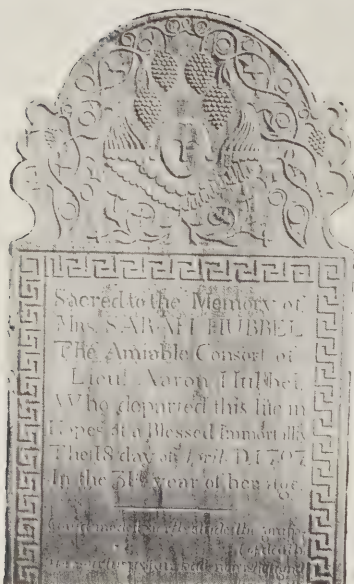 Sacred to the Memory of
Mrs. SARAH HUBBEL
The Amiable Consort of
Lieut. Aaron Hubbel,
Who departed this life in
Hopes of a Blessed Immortality
The 18 day of April D. 1797
In the 31st year of her age.